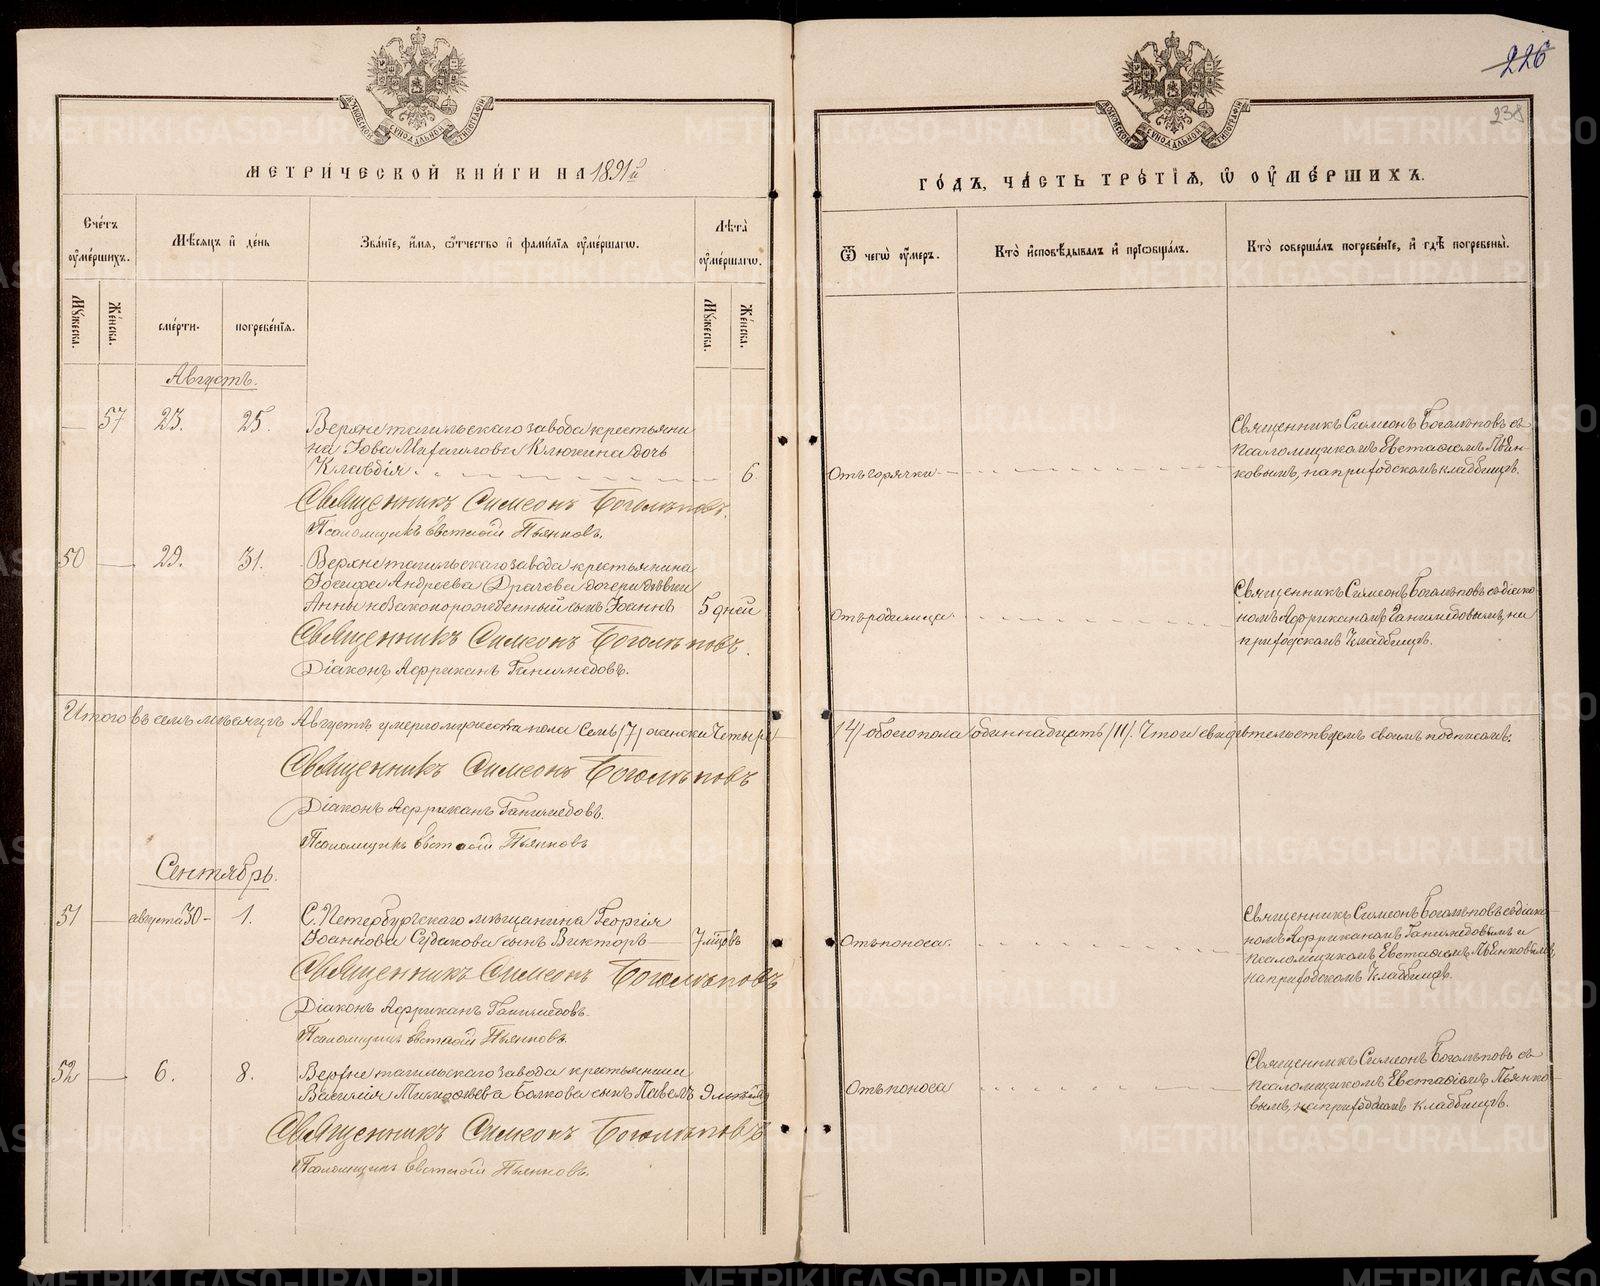 226
238
МОСКОВСКОЙ СѴНОДАЛЬНОЙ ТИПОГРАФІИ
МЕТРИ́ЧЕСКОЙ КНИ́ГИ НА 1891й
Сче́тъ ᲂу҆ме́ршихъ.
Мѣ́сяцъ и҆ де́нь
Зва́нїе, и҆́мя, ѻ҆́тчество и҆ фами́лїя ᲂу҆ме́ршагѡ.
Лѣ́та ᲂу҆ме́ршагѡ.
Мꙋ́жеска.
Же́нска.
сме́рти.
погребе́нїя.
Мꙋ́жеска.
Же́нска.
Августъ.
— 57 23. 25.
Верхнетагильскаго завода крестьяни
на Іова Михаилова Клюкина дочь
Клавдія. 6.
Священникъ Симеонъ Боголѣповъ.
Псаломщикъ Евстафій Пьянковъ.
50 — 29. 31.
Верхнетагильскаго завода крестьянина
Іосифа Андреева Драчева дочери дѣвки
Анны незаконорожденный сынъ Іоаннъ 5 дней
Священникъ Симеонъ Боголѣповъ.
Діаконъ Африканъ Ганимедовъ.
Итого въ семъ мѣсяцѣ Августѣ умерло мужеска пола Семь /7/ женска Четыре
Священникъ Симеонъ Боголѣповъ
Діаконъ Африканъ Ганимедовъ.
Псаломщикъ Евстафій Пьянковъ
Сентябрь.
51 — августа 30 - 1.
С. Петербургскаго мѣщанина Георгія
Іоаннова Судакова сынъ Викторъ — 7 мѣсцовъ
Священникъ Симеонъ Боголѣповъ
Діаконъ Африканъ Ганимедовъ.
Псаломщикъ Евстафій Пьянковъ.
52 — 6. 8.
Верхнетагильскаго завода крестьянина
сынъ Павелъ
Священникъ Симеонъ Боголѣповъ
Псаломщикъ Евстафій Пьянковъ.
МОСКОВСКОЙ СѴНОДАЛЬНОЙ ТИПОГРАФІИ
ГО́ДЪ, ЧА́СТЬ ТРЕ́ТЇѦ, Ѡ҆ ОУ҆МЕ́РШИХЪ.
Ѿ чегѡ̀ ᲂу҆́мер.
Кто̀ и҆сповѣ́дывал и҆ прїѻбща́лъ.
Кто̀ соверша́лъ погребе́нїе, и҆ гдѣ̀ погребены̀.
Отъ горячки
Священникъ Симеонъ Боголѣповъ съ
псаломщикомъ Евстафіемъ Пьян-
ковымъ, на приходскомъ кладбищѣ.
Отъ родимца.
Священникъ Симеонъ Боголѣповъ съ діако-
номъ Африканомъ Ганимедовымъ, на
приходскомъ Кладбищѣ.
/4/ обоего пола одиннадцать /11/. Что и свидѣтельствуемъ своимъ подписомъ.
Отъ поноса.
Священникъ Симеонъ Боголѣповъ съ діако-
номъ Африканомъ Ганимедовымъ и
псаломщикомъ Евстафіемъ Пьянковымъ,
на приходскомъ Кладбищѣ.
Отъ поноса
Священникъ Симеонъ Боголѣповъ съ
псаломщикомъ Евстафіемъ Пьянко-
вымъ, на приходскомъ кладбищѣ.
METRIKI.GASO-URAL.RU